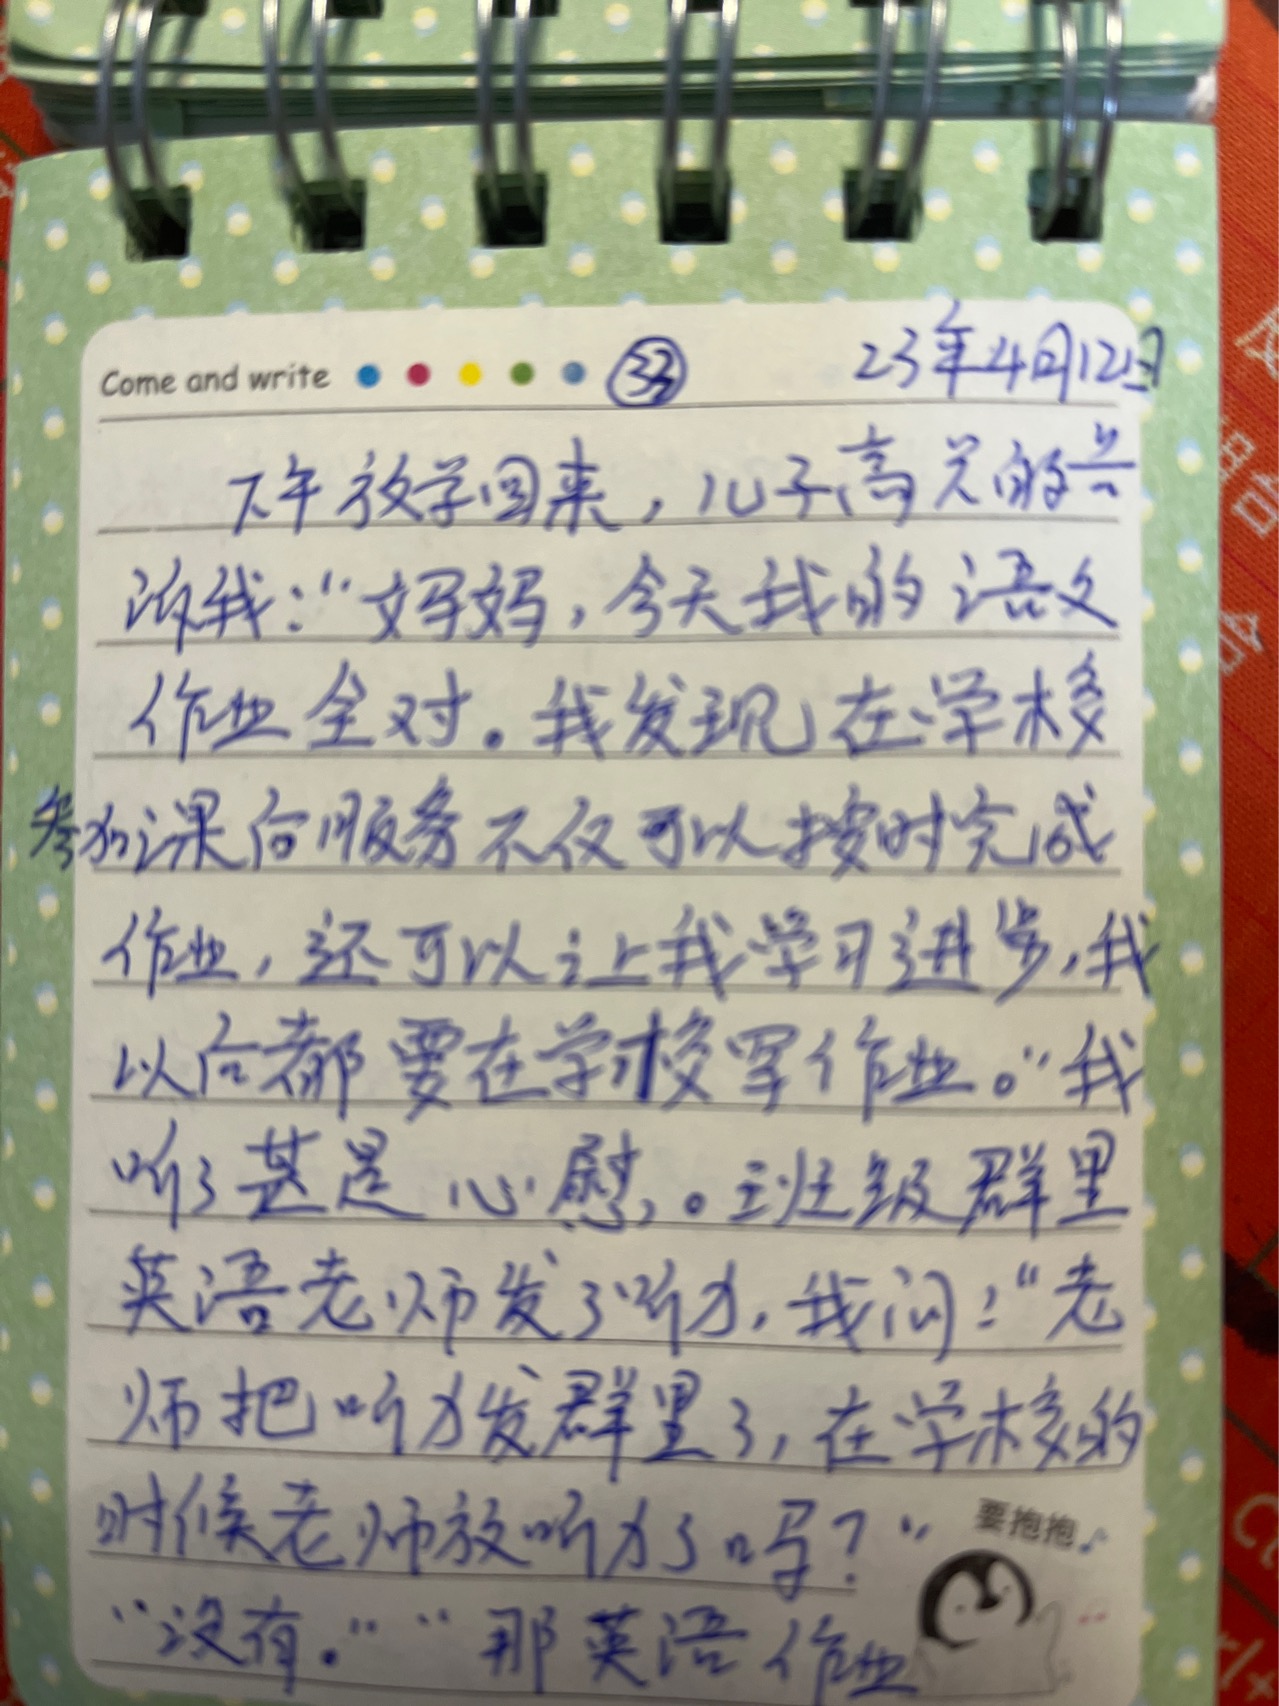 Come and write 33 23年4月12日
下午放学回来，儿子高兴的告
诉我：“妈妈，今天我的语文
作业全对。我发现在学校
参加课后服务不仅可以按时完成
作业，还可以让我学习进步，我
以后都要在学校写作业。”我
听了甚是心慰。班级群里
英语老师发了听力，我问：“老
师把听力发群里了，在学校的
时候老师放听力了吗？”
要抱抱
“没有。”“那英语作业